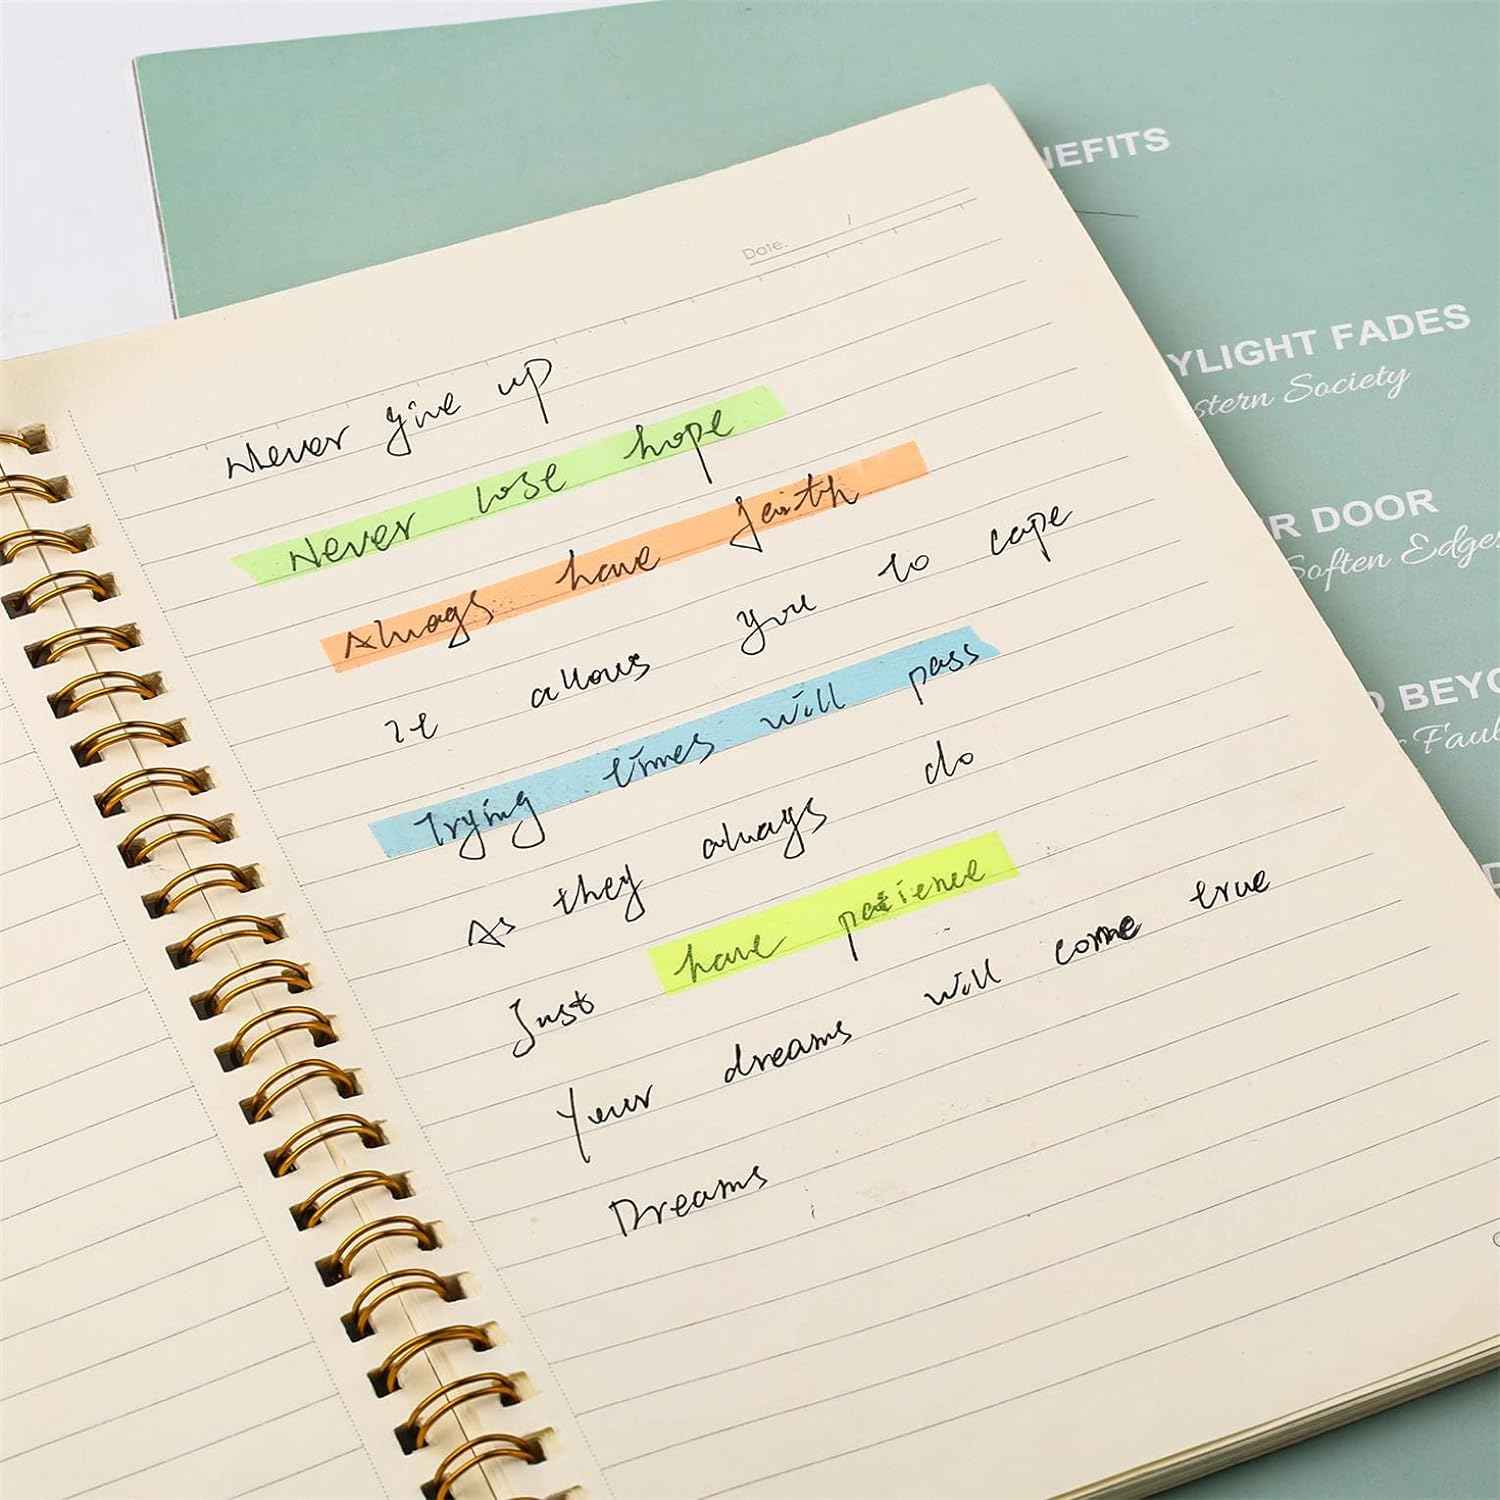 Date: /
Never give up
Never lose hope
Always have faith
It allows you to cope
Trying times will pass
As they always do
Just have patience
Your dreams will come true
Dreams
NEFITS
YLIGHT FADES
stern Society
R DOOR
Soften Edges
D BEYO
Faul